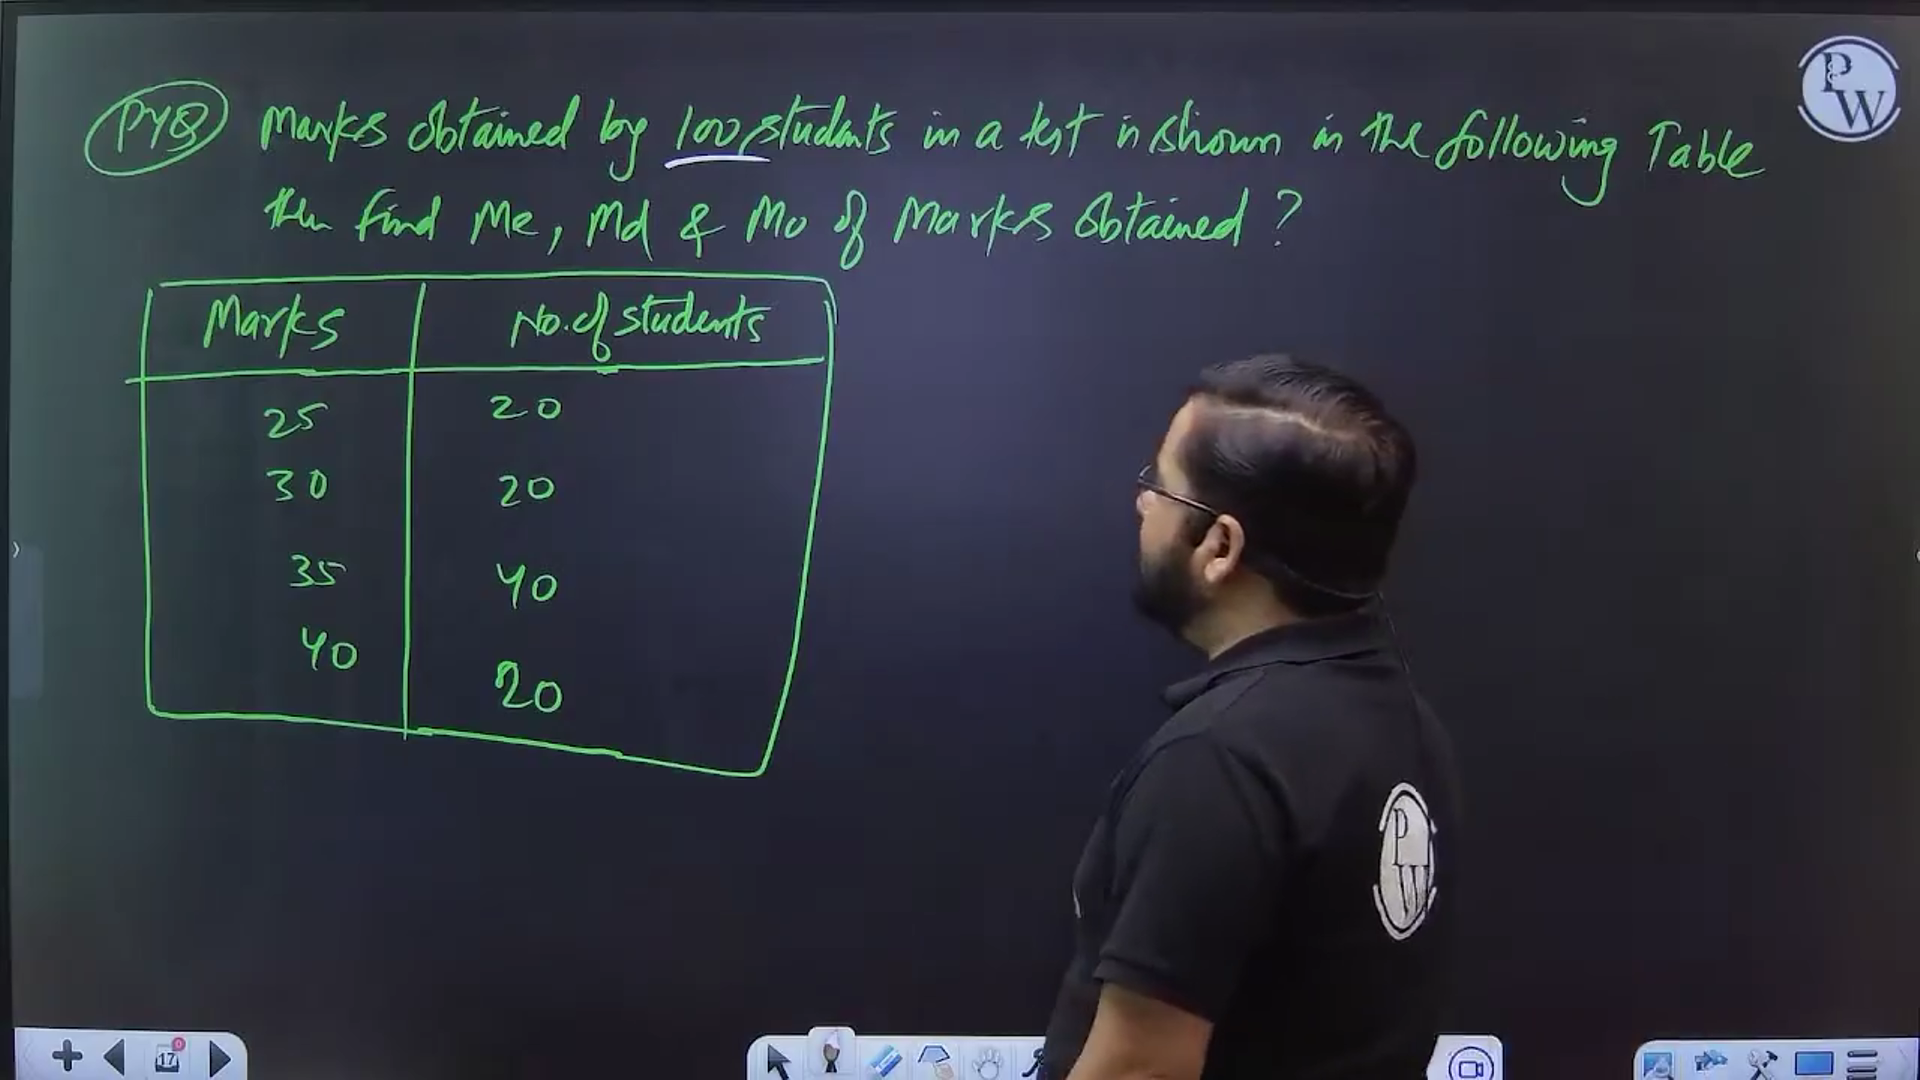 PYQ Marks obtained by 100 students in a test is shown in the following Table
then find Me, Md & Mo of Marks obtained?
Marks No. of students
25 20
30 20
35 40
40 20
PW
PW
17 0